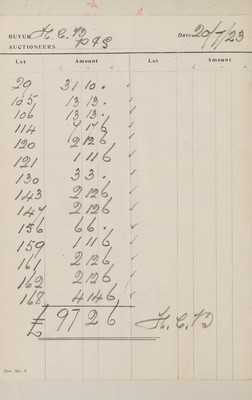 BUYER H.C.B Date 20/7/23
AUCTIONEERS P&S
Lot Amount Lot Amount
20 31 10 .
105 13 13 .
106 13 13 .
114 7 17 6
120 2 12 6
121 1 11 6
130 3 3 .
143 2 12 6
147 2 12 6
156 6 6 .
159 1 11 6
161 2 12 6
162 2 12 6
168 4 14 6
£ 97 2 6 H.C.B